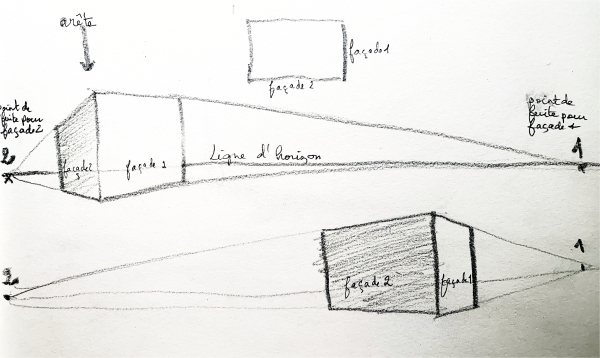 arête
façade 1
façade 2
point de
fuite pour
façade 2
point de
fuite pour
façade 1
2
1
façade 2
façade 1
Ligne d'horizon
2
1
façade 2
façade 1